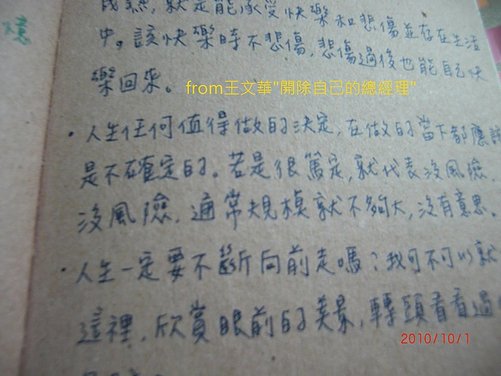 成熟,就是能承受快樂和悲傷並存在生活
中。該快樂時不悲傷,悲傷過後也能自己快
樂回來。
from王文華"開除自己的總經理"
憶
・人生任何值得做的決定,在做的當下都應該
是不確定的。若是很篤定,就代表沒風險.
沒風險.通常規模就不夠大,沒有意思.
・人生一定要不斷向前走嗎?我可不可以就
這裡.欣賞眼前的美景,轉頭看看過
2010/10/1